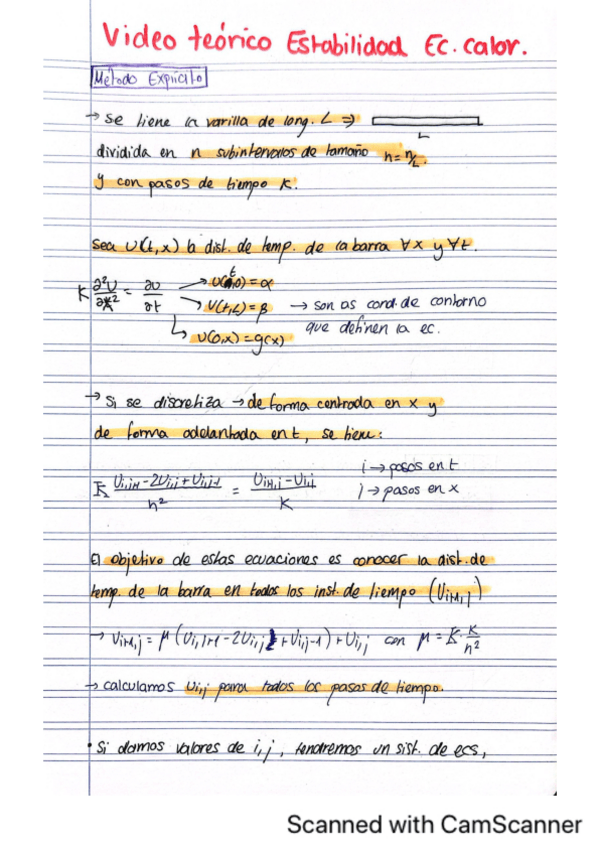 Video teórico Estabilidad Ec. calor.
Método Explícito
→ Se tiene la varilla de long. L ⇒
L
dividida en n subintervalos de tamaño h = n/L.
y con pasos de tiempo K.
Sea U(t,x) la dist. de temp. de la barra ∀x y ∀t.
K ∂²U/∂x² = ∂U/∂t → U(t,0) = α
→ U(t,L) = β → son as cond. de contorno
que definen la ec.
↳ U(0,x) = g(x)
→ Si se discretiza → de forma centrada en x y
de forma adelantada en t, se tiene:
K (Ui,j+1 - 2Ui,j + Ui,j-1)/h² = (Ui+1,j - Ui,j)/K
i → pasos en t
j → pasos en x
El objetivo de estas ecuaciones es conocer la dist. de
temp. de la barra en todos los inst. de tiempo (Ui+1,j)
→ Ui+1,j = μ (Ui,j+1 - 2Ui,j + Ui,j-1) + Ui,j con μ = K · K/h²
→ calculamos Ui,j para todos los pasos de tiempo.
• Si damos valores de i, j, tendremos un sist. de ecs,
Scanned with CamScanner